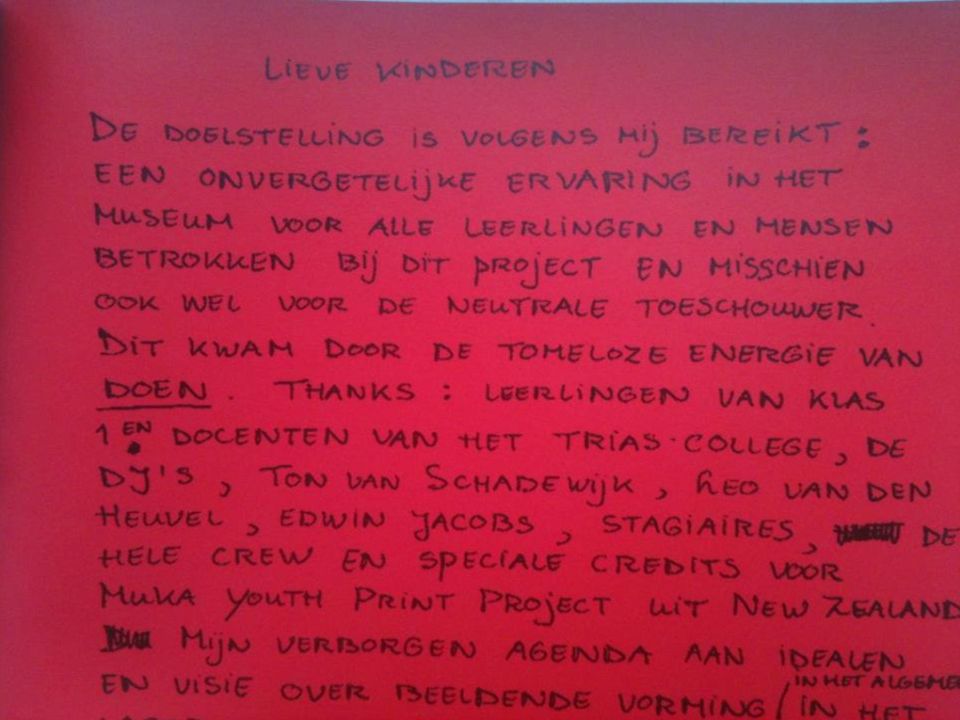 LIEVE KINDEREN
DE DOELSTELLING IS VOLGENS MIJ BEREIKT:
EEN ONVERGETELIJKE ERVARING IN HET
MUSEUM VOOR ALLE LEERLINGEN EN MENSEN
BETROKKEN BIJ DIT PROJECT EN MISSCHIEN
OOK WEL VOOR DE NEUTRALE TOESCHOUWER.
DIT KWAM DOOR DE TOMELOZE ENERGIE VAN
DOEN. THANKS: LEERLINGEN VAN KLAS
1 EN DOCENTEN VAN HET TRIAS-COLLEGE, DE
DJ'S, TON VAN SCHADEWIJK, LEO VAN DEN
HEUVEL, EDWIN JACOBS, STAGIAIRES, DE
HELE CREW EN SPECIALE CREDITS VOOR
MUKA YOUTH PRINT PROJECT UIT NEW ZEALAND
MIJN VERBORGEN AGENDA AAN IDEALEN
EN VISIE OVER BEELDENDE VORMING (IN HET ALGEMEE
IN HET